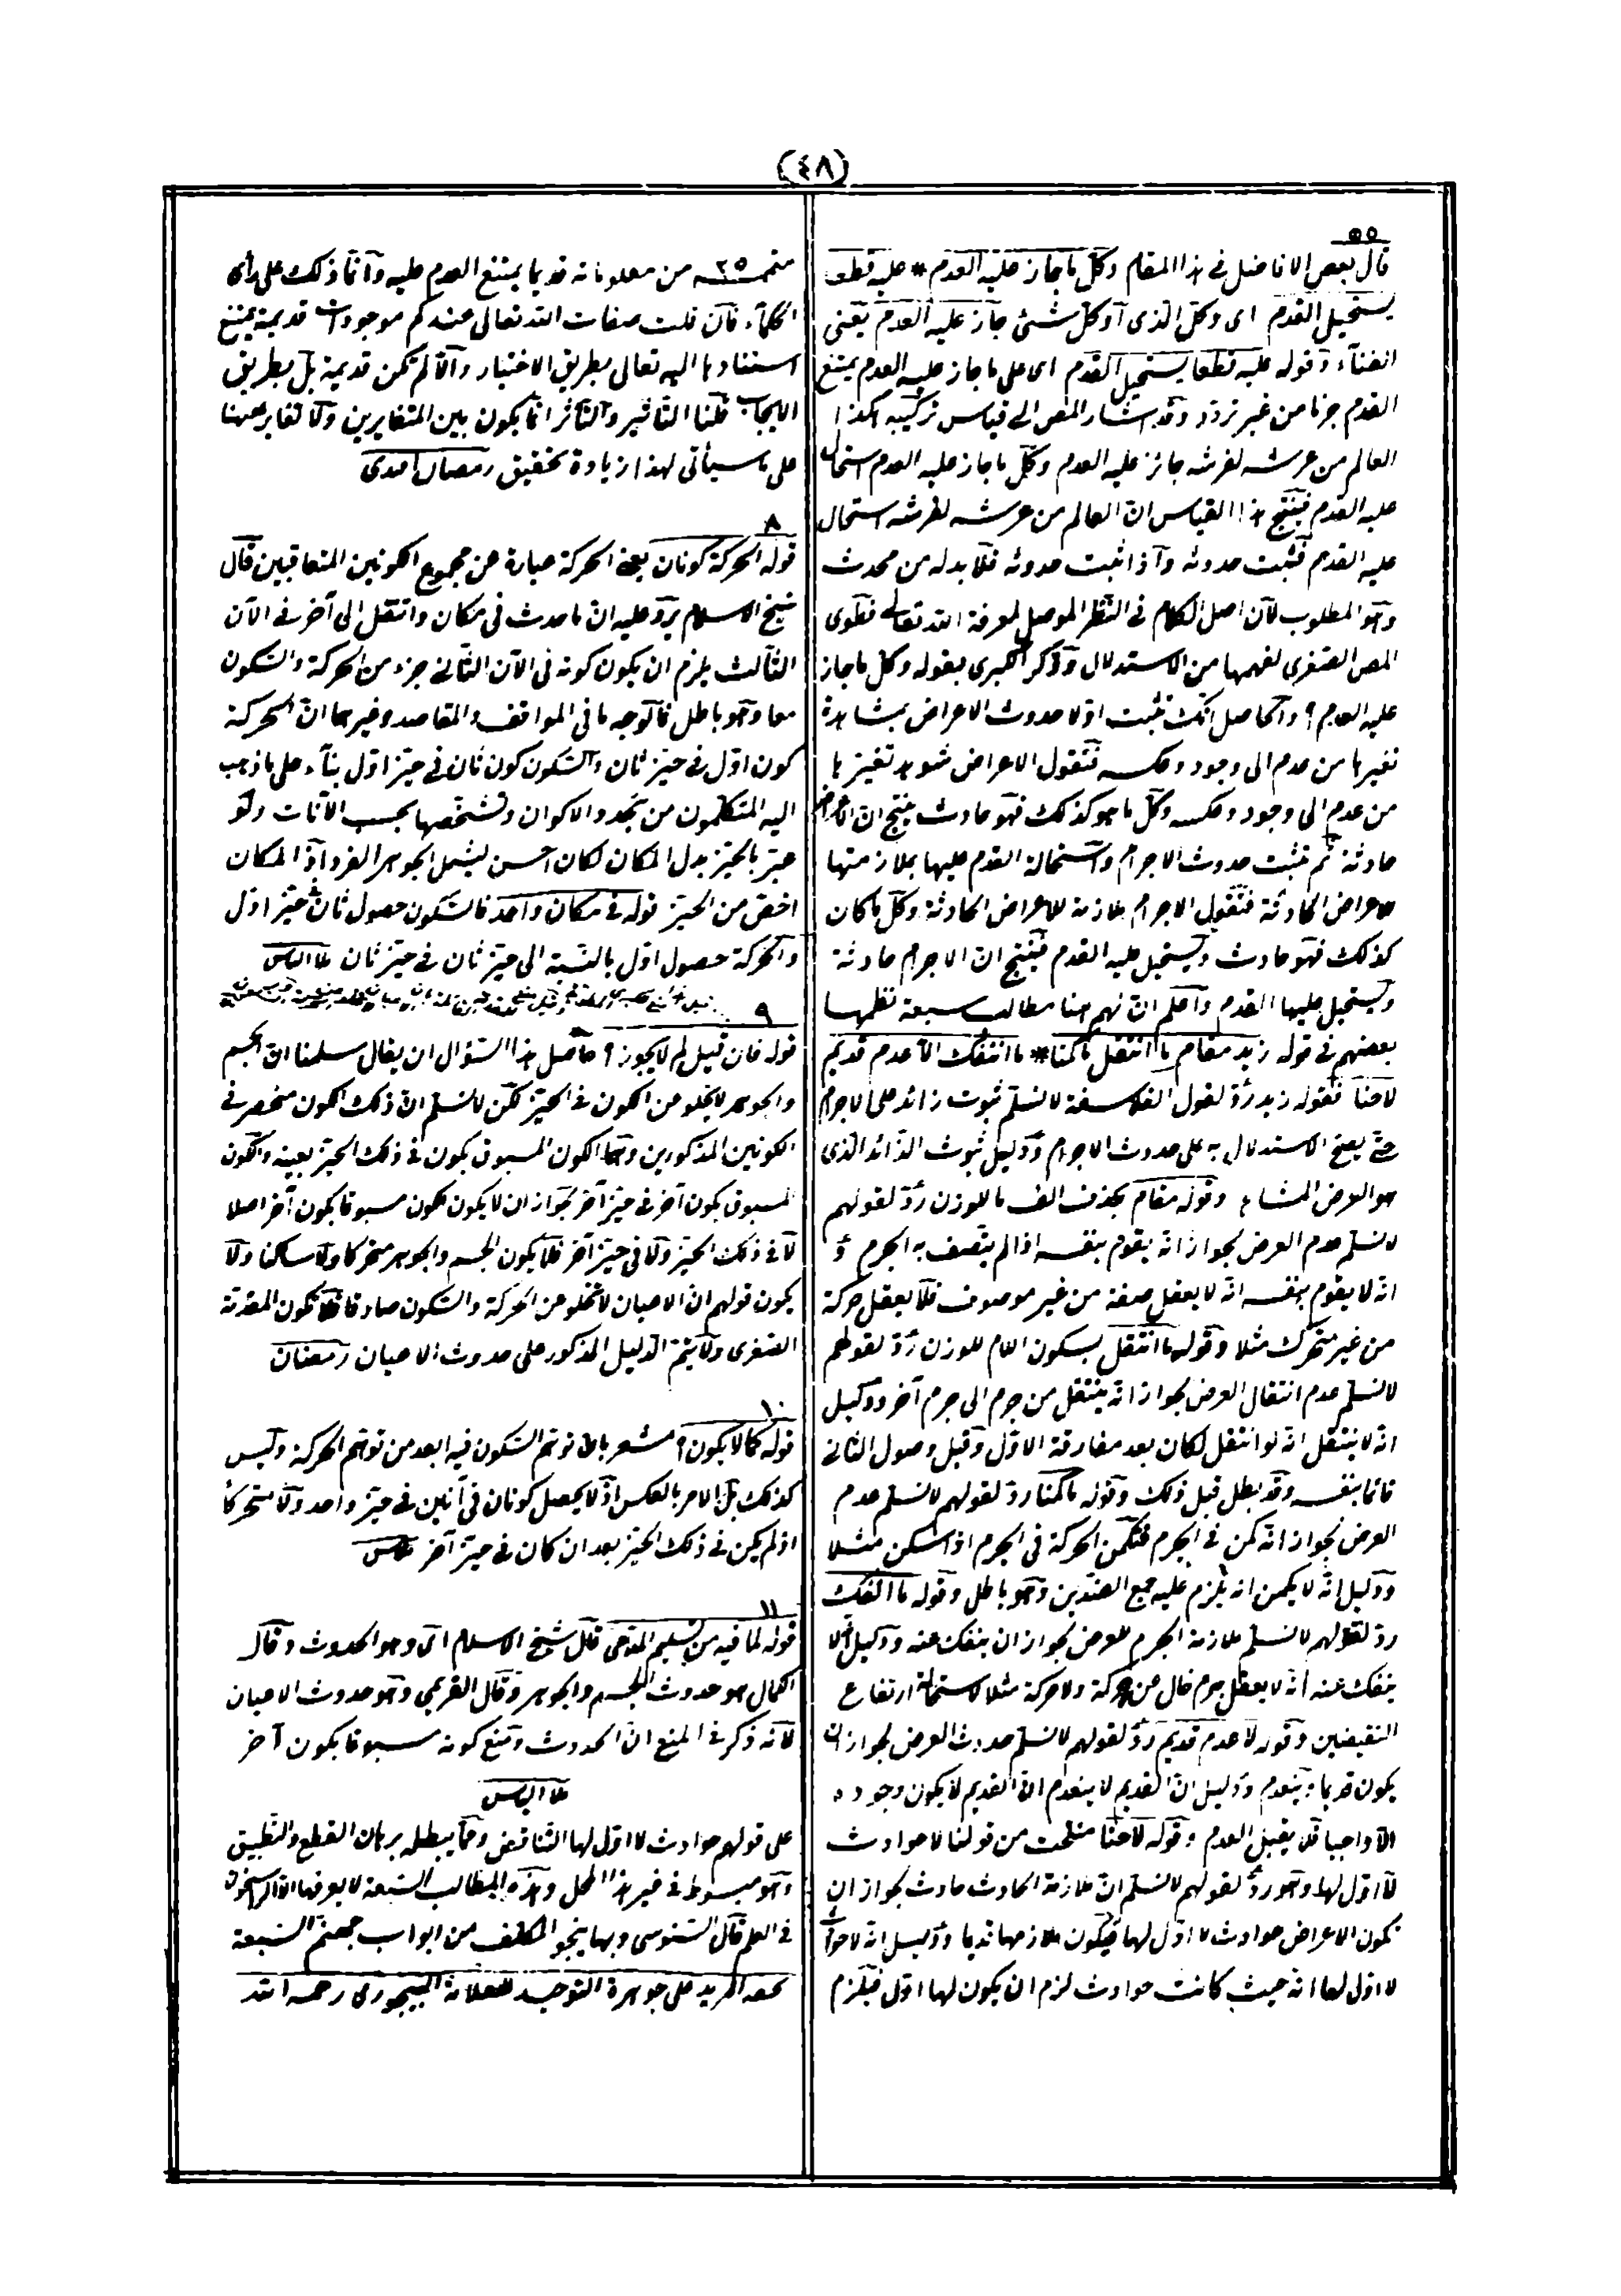 (٤٨)
٥٥
قال بعض الافاضل فى هذا المقام وكل ما جاز عليه العدم * عليه قطعا
يستحيل القدم اى وكل الذى او كل شئ جاز عليه العدم يعنى
الفناء وقوله عليه قطعا يستحيل القدم اى على ما جاز عليه العدم يمتنع
القدم جزما من غير تردد وقد اشار المص الى قياس تركيبه هكذا
العالم من عرشه لفرشه جائز عليه العدم وكل ما جاز عليه العدم استحال
عليه القدم فينتج هذا القياس ان العالم من عرشه لفرشه استحال
عليه القدم فثبت حدوثه واذا ثبت حدوثه فلا بد له من محدث
وهو المطلوب لان اصل الكلام فى النظر الموصل لمعرفة الله تعالى فطوى
المص الصغرى لفهمها من الاستدلال وذكر الكبرى بقوله وكل ما جاز
عليه العدم ؟ والحاصل انك تثبت اولا حدوث الاعراض بمشاهدة
تغيرها من عدم الى وجود وعكسه فتقول الاعراض شوهد تغيرها
من عدم الى وجود وعكسه وكل ما هو كذلك فهو حادث ينتج ان الاعراض
حادثة ثم تثبت حدوث الاجرام واستحالة القدم عليها بملازمتها
للاعراض الحادثة فتقول الاجرام ملازمة للاعراض الحادثة وكل ما كان
كذلك فهو حادث ويستحيل عليه القدم فينتج ان الاجرام حادثة
ويستحيل عليها القدم واعلم ان لهم هنا مطالب سبعة نظمها
بعضهم فى قوله زيد مقام ما انتقل ما كمنا * ما انفك لا عدم قديم
لاحنا فقوله زيد رد لقول الفلاسفة لا نسلم ثبوت زائد على الاجرام
حتى يصح الاستدلال به على حدوث الاجرام ودليل ثبوت الزائد الذى
هو العرض المشاهدة وقوله مقام بحذف الف ما للوزن رد لقولهم
لا نسلم عدم العرض لجواز انه يقوم بنفسه اذا لم يتصف به الجرم و
انه لا يقوم بنفسه انه لا يعقل صفة من غير موصوف فلا يعقل حركة
من غير متحرك مثلا وقوله ما انتقل بسكون اللام للوزن رد لقولهم
لا نسلم عدم انتقال العرض لجواز انه ينتقل من جرم الى جرم آخر ودليل
انه لا ينتقل انه لو انتقل لكان بعد مفارقة الاول وقبل وصول الثانى
قائما بنفسه وقد بطل قبل ذلك وقوله ما كمنا رد لقولهم لا نسلم عدم
العرض لجواز انه كمن فى الجرم فتكمن الحركة فى الجرم اذا سكن مثلا
ودليل انه لا يكمن انه يلزم عليه جمع الضدين وهو باطل وقوله ما انفك
رد لقولهم لا نسلم ملازمة الجرم للعرض لجواز ان ينفك عنه ودليل انه لا
ينفك عنه انه لا يعقل جرم خال من حركة ولا حركة مثلا لاستحالة ارتفاع
النقيضين وقوله لا عدم قديم رد لقولهم لا نسلم حدوث العرض لجواز ان
يكون قديما وينعدم ودليل ان القديم لا ينعدم ان القديم لا يكون وجوده
الا واجبا فلا يقبل العدم وقوله لاحنا منحت من قولنا لا حوادث
لا اول لها وهو رد لقولهم لا نسلم ان ملازمة الحادث حادث لجواز ان
تكون الاعراض حوادث لا اول لها فيكون ملازمها قديما ودليل انه لا حوادث
لا اول لها انه حيث كانت حوادث لزم ان يكون لها اول فيلزم
من معلوماته قديما يمتنع العدم عليه وانما ذلك على رأى
الحكماء فان قلت صفات الله تعالى عندكم موجودات قديمة يمتنع
استنادها اليه تعالى بطريق الاختيار والا لم تكن قديمة بل بطريق
الايجاب قلنا التأثير والتأثر انما يكون بين المتغايرين ولا تغاير ههنا
على ما سيأتى لهذا زيادة تحقيق رمضان افندى
٨
قوله الحركة كونان يعنى الحركة عبارة عن مجموع الكونين المتعاقبين قال
شيخ الاسلام يرد عليه ان ما حدث فى مكان وانتقل الى آخر فى الآن
الثالث يلزم ان يكون كونه فى الآن الثانى جزء من الحركة والسكون
معا وهو باطل فالوجه ما فى المواقف والمقاصد وغيرهما ان الحركة
كون اول فى حيز ثان والسكون كون ثان فى حيز اول بناء على ما ذهب
اليه المتكلمون من تجدد الاكوان وتشخصها بحسب الآنات ولو
عبر بالحيز بدل المكان لكان احسن ليشمل الجوهر الفرد اذ المكان
اخص من الحيز قوله فى مكان واحد فالسكون حصول ثان فى حيز اول
والحركة حصول اول بالنسبة الى حيز ثان فى حيز ثان ملا الياس
٩
قوله فان قيل لم لا يجوز ؟ حاصل هذا السؤال ان يقال سلمنا ان الجسم
والجوهر لا يخلو من الكون فى الحيز لكن لا نسلم ان ذلك الكون منحصر فى
الكونين المذكورين وهما الكون المسبوق بكون فى ذلك الحيز بعينه والكون
المسبوق بكون آخر فى حيز آخر لجواز ان لا يكون الكون مسبوقا بكون آخر اصلا
لا فى ذلك الحيز ولا فى حيز آخر فلا يكون الجسم والجوهر متحركا ولا ساكنا ولا
يكون قولهم ان الاعيان لا تخلو عن الحركة والسكون صادقا فلا تكون المقدمة
الصغرى ولا يتم الدليل المذكور على حدوث الاعيان رمضان
١٠
قوله كما لا يكون ؟ مشعر بان توهم السكون فيه ابعد من توهم الحركة وليس
كذلك بل الامر بالعكس اذ لا يحصل كونان فى آنين فى حيز واحد ولا متحركا
اذ لم يكن فى ذلك الحيز بعد ان كان فى حيز آخر
١١
قوله لما فيه من تسليم المدعى قال شيخ الاسلام اى وهو الحدوث وقال
الكمال هو حدوث الجسم والجوهر وقال القريمى وهو حدوث الاعيان
لانه ذكر فى المنع ان الحدوث ومنع كونه مسبوقا بكون آخر
ملا الياس
على قولهم حوادث لا اول لها التناقض ومما يبطله برهان القطع والتطبيق
وهو مبسوط فى غير هذا المحل وهذه المطالب السبعة لا يعرفها الا الراسخون
فى العلم قال السنوسى وبها ينجو المكلف من ابواب جهنم السبعة
تحفة المريد على جوهرة التوحيد للعلامة البيجورى رحمه الله